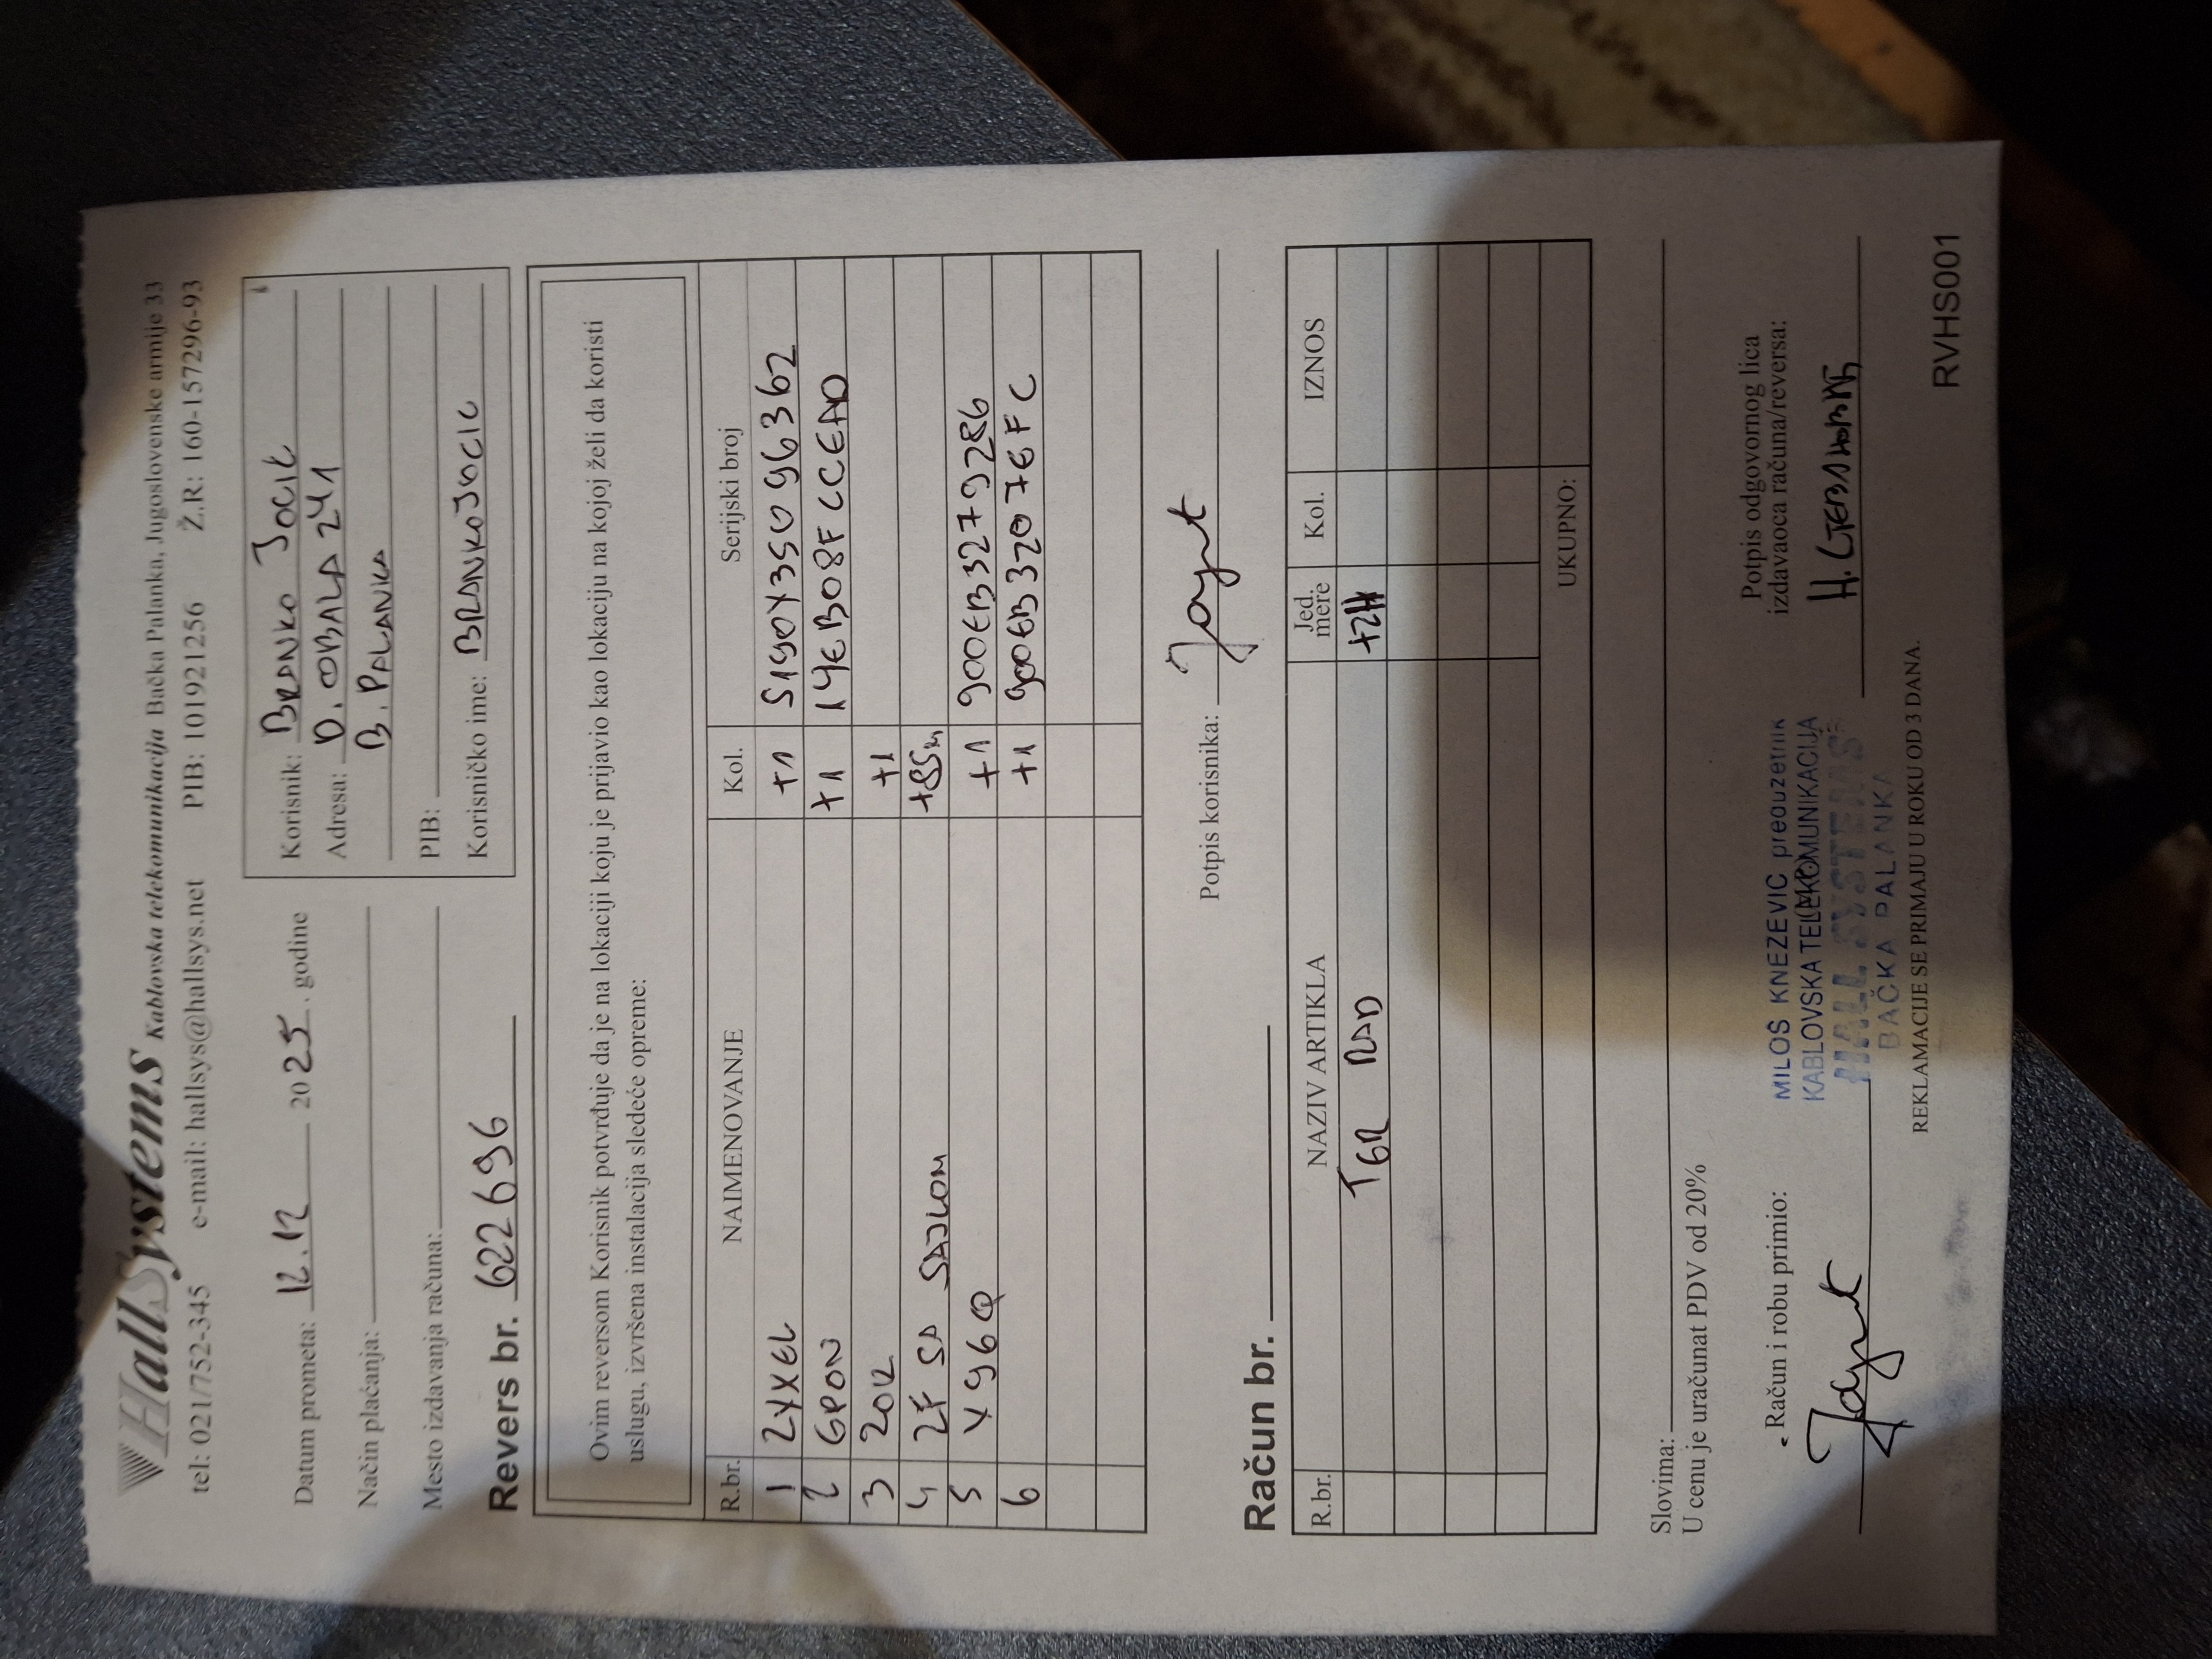 HallSystems Kablovska telekomunikacija Bačka Palanka, Jugoslovenske armije 33
tel: 021/752-345 e-mail: hallsys@hallsys.net PIB: 101921256 Ž.R: 160-157296-93
Datum prometa: 12.12 2025. godine
Način plaćanja:
Mesto izdavanja računa:
Revers br. 622696
Korisnik: BRANKO JOCIĆ
Adresa: D. OBALA 241
B. PALANKA
PIB:
Korisničko ime: BRANKOJOCIC
Ovim reversom Korisnik potvrđuje da je na lokaciji koju je prijavio kao lokaciju na kojoj želi da koristi
uslugu, izvršena instalacija sledeće opreme:
R.br. NAIMENOVANJE Kol. Serijski broj
1 ZYXEL +1 S190Y35096362
2 GPON +1 14EB08FCCEAD
3 ZOK +1
4 2F SA SAJLOM +85m
5 X96Q +1 900EB3279286
6 +1 900EB32076FC
Potpis korisnika:
Račun br.
R.br. NAZIV ARTIKLA Jed. mere Kol. IZNOS
TGR RAD +2H
UKUPNO:
Slovima:
U cenu je uračunat PDV od 20%
Račun i robu primio:
MILOS KNEZEVIC preduzetnik
KABLOVSKA TELEKOMUNIKACIJA
HALL SYSTEMS
BAČKA PALANKA
Potpis odgovornog lica
izdavaoca računa/reversa:
REKLAMACIJE SE PRIMAJU U ROKU OD 3 DANA.
RVHS001